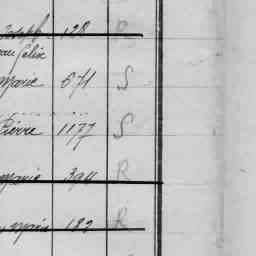 Joseph 128 R
Félix
Marie 571 S
Pierre 1177 S
Marie 394 R
182 R